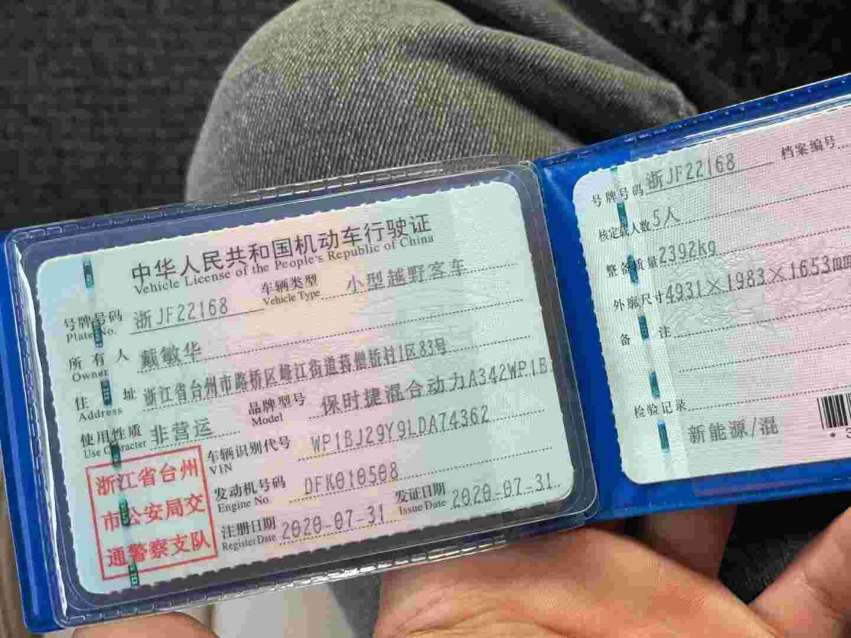 中华人民共和国机动车行驶证
Vehicle License of the People's Republic of China
号牌号码 浙JF22168 车辆类型 小型越野客车
Plate No. Vehicle Type
所有人 戴敏华
Owner
住址 浙江省台州市路桥区蓬江街道蒋僧桥村1区83号
Address
使用性质 非营运 品牌型号 保时捷混合动力A342WP1B
Use Character Model
车辆识别代号 WP1BJ29Y9LDA74362
VIN
浙江省台州
市公安局交
通警察支队
发动机号码 DFK010508
Engine No.
注册日期 2020-07-31 发证日期 2020-07-31
Register Date Issue Date
号牌号码 浙JF22168 档案编号
核定载人数 5人
整备质量 2392kg
外廓尺寸 4931×1983×1653mm
备注
检验记录
新能源/混